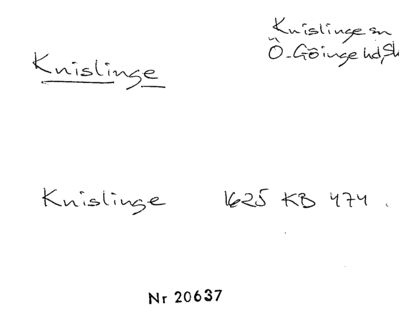 Knislinge sn
Ö-Göinge hd, Sk
Knislinge
Knislinge 1625 KB 474.
Nr 20637